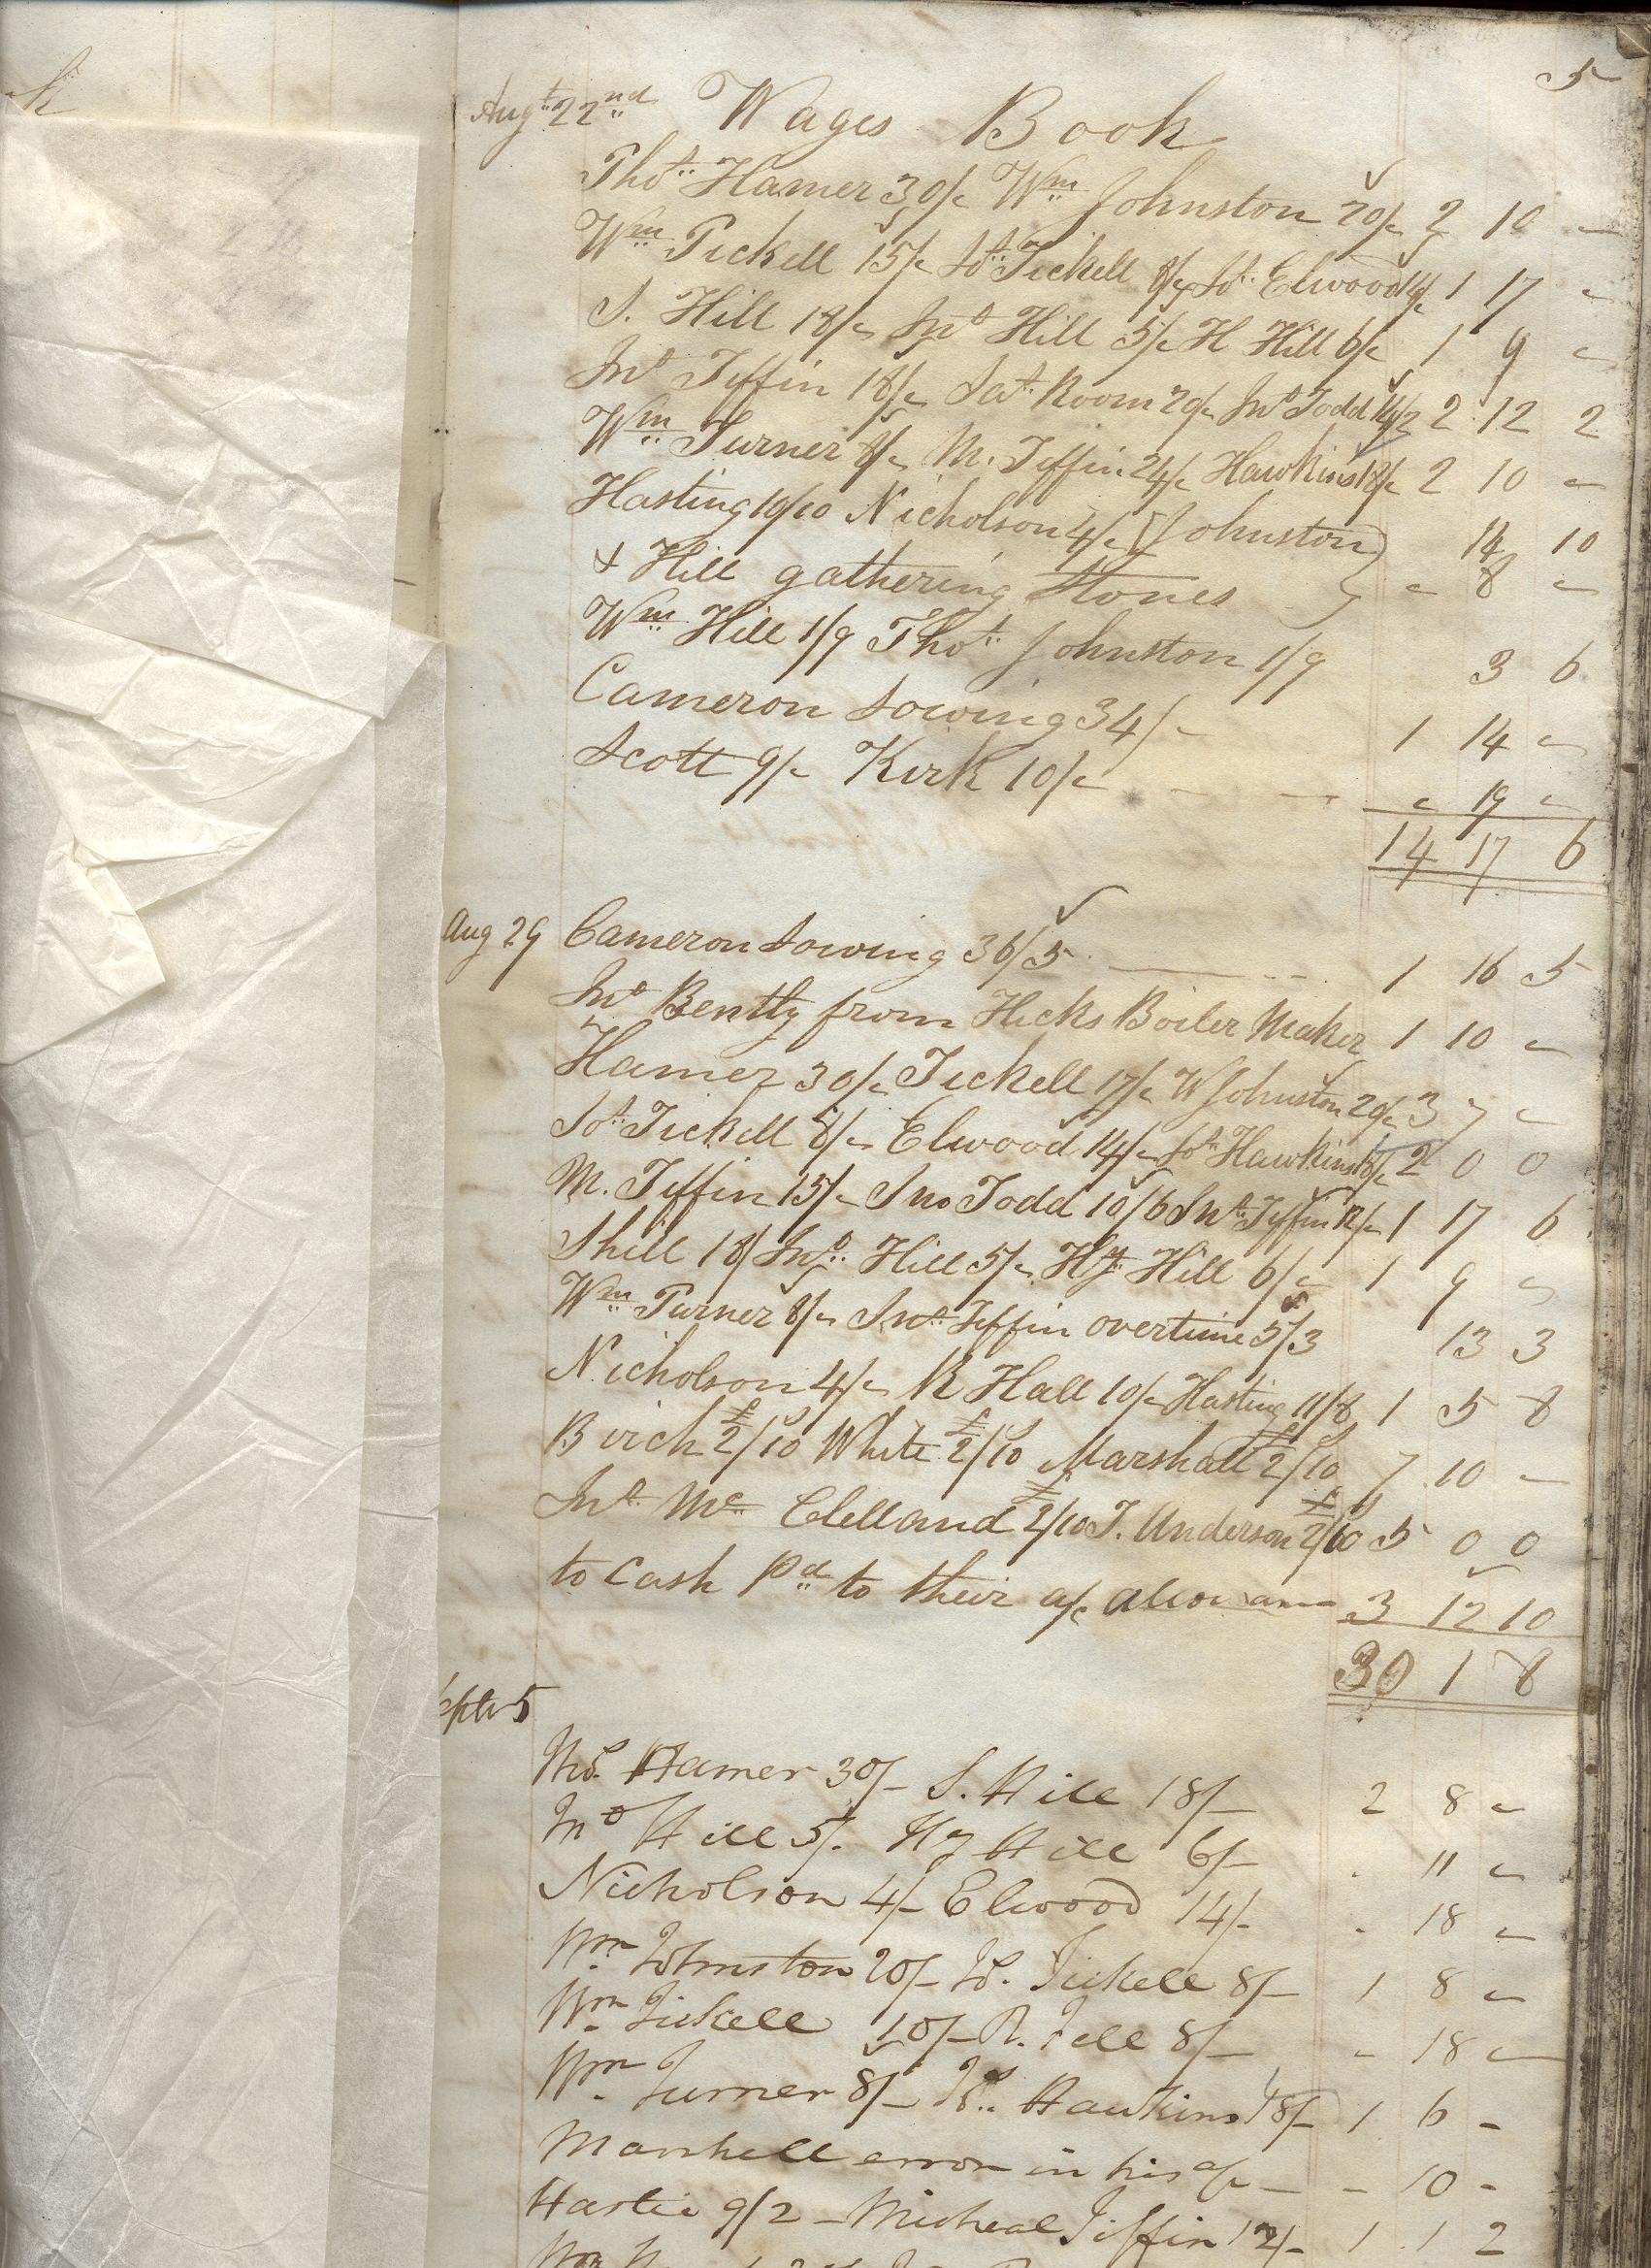 5
Augt 22nd Wages Book
Thos Hamer 30/- Wm Johnston 20/- 2 10 -
Wm Tickell 15/- Jos Tickell 8/- Jos Elwood 14/- 1 17 -
S. Hill 18/- Jno Hill 5/- H Hill 6/- 1 9 -
Jno Tiffin 18/- Room 20/- Jno Todd 14/2 2 12 2
Wm Turner 8/- M. Tiffin 24/- Hawkins 18/- 2 10 -
Hasting 10/10 Nicholson 4/- Johnston 14 10
& Hill gathering Stones - 8 -
Wm Hill 1/9 Thos Johnston 1/9 3 6
Cameron Sowing 34/- 1 14 -
Scott 9/- Kirk 10/- - 19 -
14 17 6
Aug 29 Cameron Sowing 36/5 1 16 5
Jno Bently from Hicks Boiler Maker 1 10 -
Hamer 30/- Tickell 17/- W Johnston 20/- 3 7 -
Jos Tickell 8/- Elwood 14/- Jos Hawkins 18/- 2 0 0
M. Tiffin 15/- Jno Todd 10/6 Jno Tiffin 12/- 1 17 6
S Hill 18/ Jno Hill 5/- Hy Hill 6/- 1 9 -
Wm Turner 8/- Jno Tiffin overtime 5/3 13 3
Nicholson 4/- R Hall 10/- Hasting 11/8 1 5 8
Birch £2/10 White £2/10 Marshall £2/10 7 10 -
Jno Mc Clelland £2/10 T. Anderson £2/10 5 0 0
to Cash Pd to their a/c 3 12 10
30 1 8
Septr 5
Thos. Hamer 30/- S. Hill 18/- 2 8 -
Jno Hill 5/. Hy Hill 6/- . 11 -
Nicholson 4/- Elwood 14/- . 18 -
Wm Johnston 20/- Jos. Tickell 8/- 1 8 -
Wm Tickell 10/- R. Fell 8/- - 18 -
Wm. Turner 8/- Jos. Hawkins 18/- 1 6 -
Marshall error in his a/c - - 10 -
Hastie 9/2 - Micheal Tiffin 12/- 1 1 2